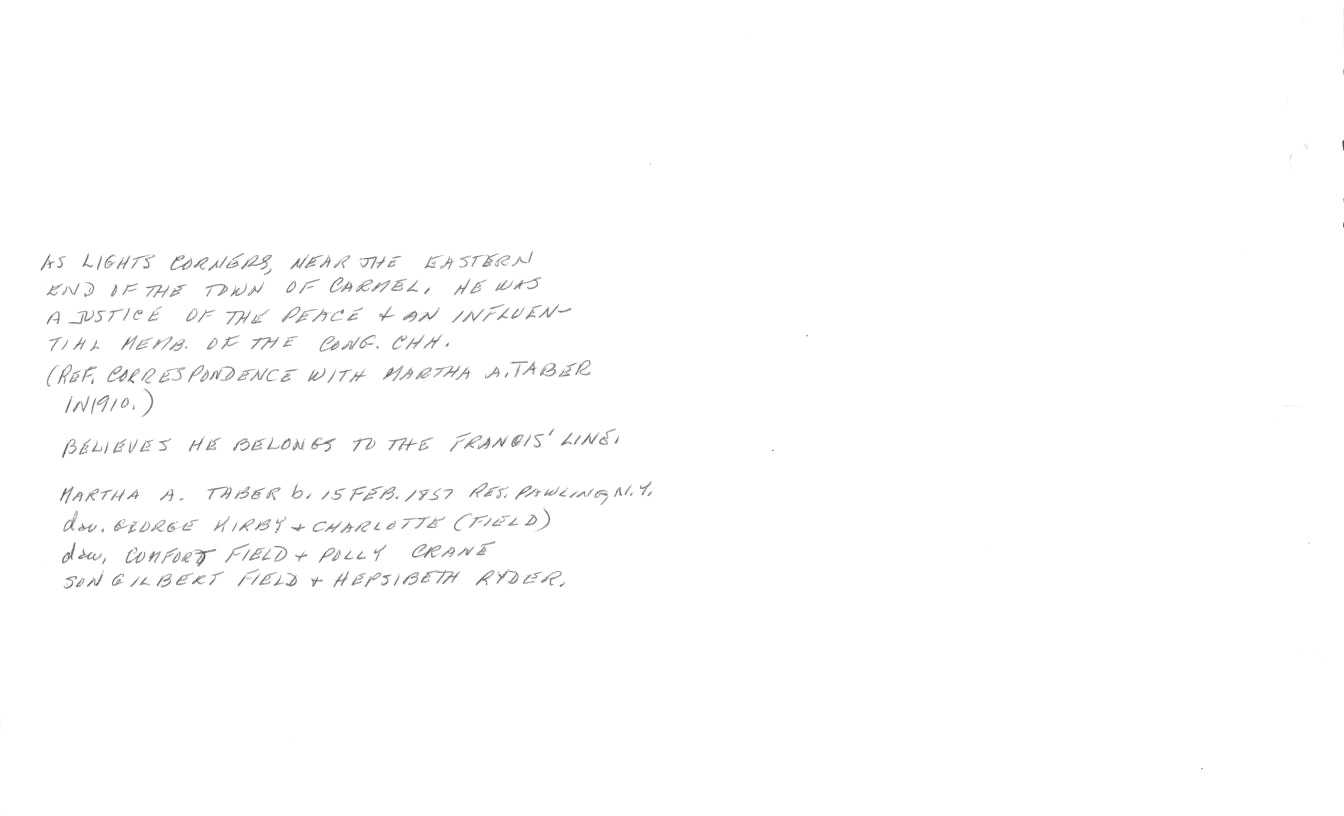 AS LIGHTS CORNERS, NEAR THE EASTERN
END OF THE TOWN OF CARMEL. HE WAS
A JUSTICE OF THE PEACE + AN INFLUEN-
TIAL MEMB. OF THE CONG. CHH.
(REF. CORRESPONDENCE WITH MARTHA A. TABER
IN 1910.)
BELIEVES HE BELONGS TO THE FRANCIS' LINE.
MARTHA A. TABER b. 15 FEB. 1857 RES. PAWLING, N.Y.
dau. GEORGE KIRBY + CHARLOTTE (FIELD)
dau. COMFORT FIELD + POLLY CRANE
SON GILBERT FIELD + HEPSIBETH RYDER.